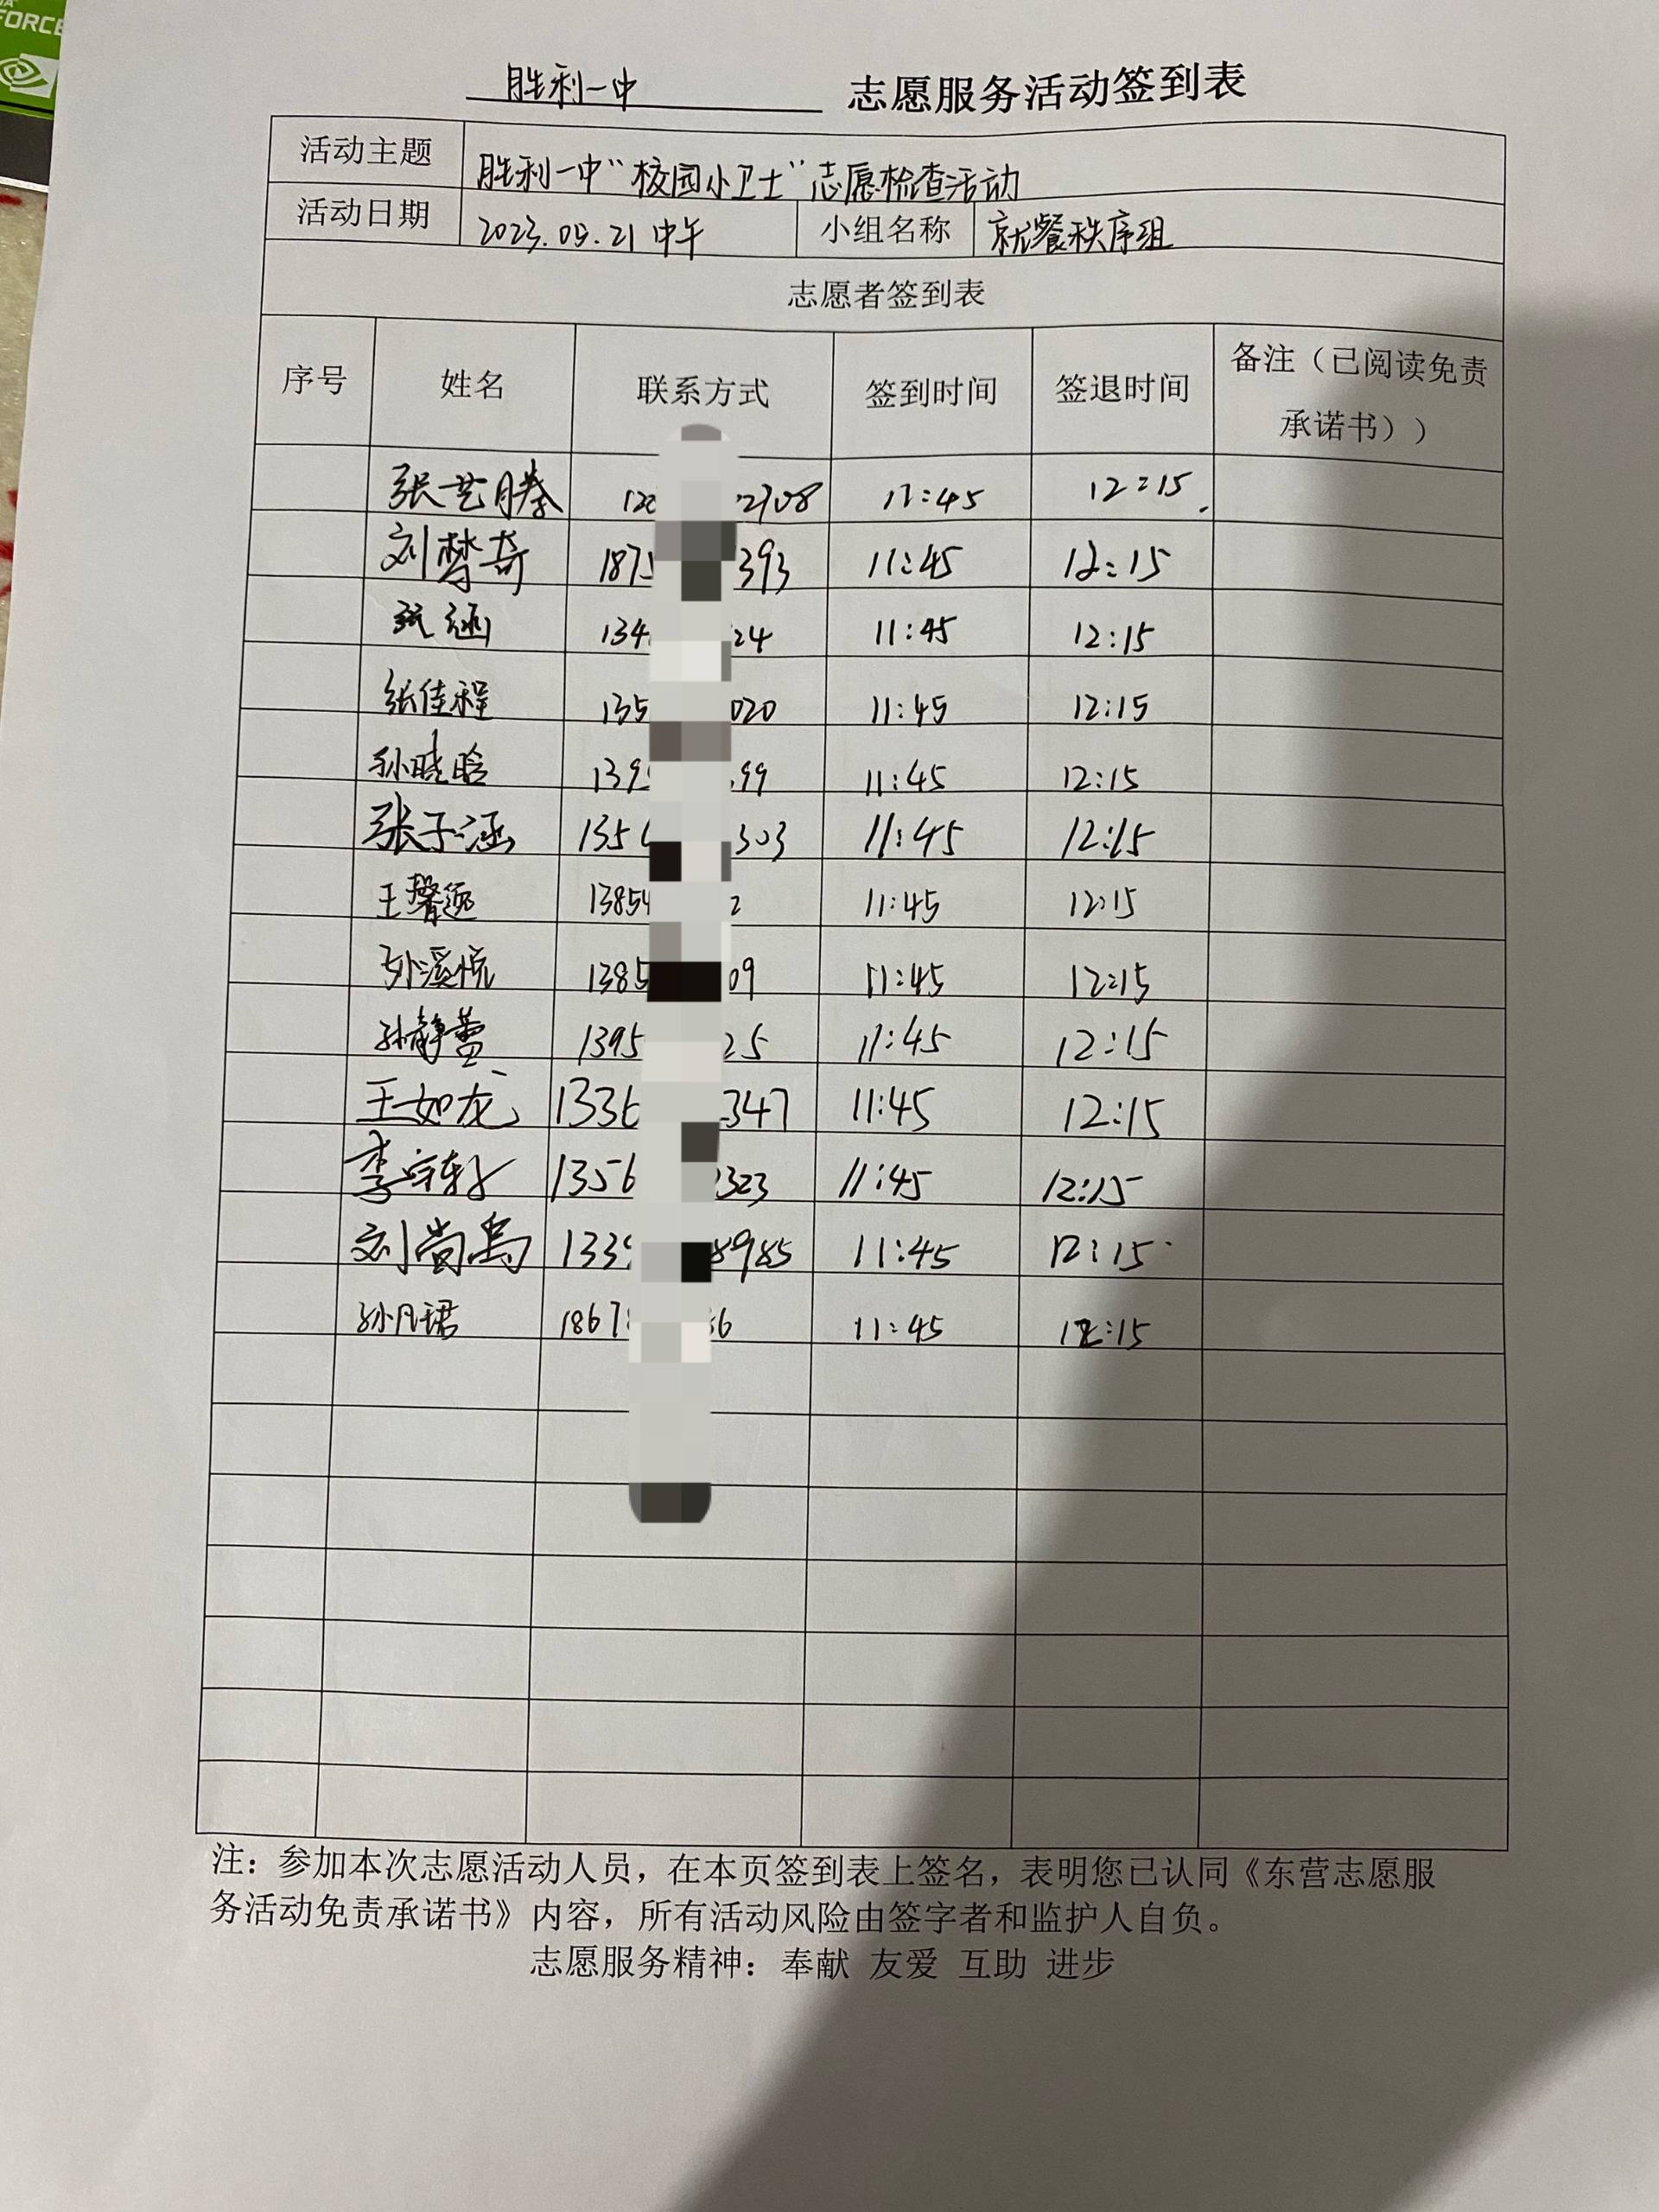 FORCE
胜利一中 志愿服务活动签到表
活动主题 胜利一中“校园小卫士”志愿检查活动
活动日期 2023.09.21 中午 小组名称 就餐秩序组
志愿者签到表
序号 姓名 联系方式 签到时间 签退时间 备注（已阅读免责
承诺书））
张艺腾 11:45 12:15
刘梦奇 1875 393 11:45 12:15
涵 134 24 11:45 12:15
张佳程 135 020 11:45 12:15
孙晓晗 139 99 11:45 12:15
张子涵 135 303 11:45 12:15
王馨 13854 2 11:45 12:15
孙溪悦 1385 09 11:45 12:15
孙静蕾 1395 25 11:45 12:15
王如龙 1336 347 11:45 12:15
李 1356 323 11:45 12:15
刘尚禹 133 8985 11:45 12:15
孙凡珺 1867 6 11:45 12:15
注：参加本次志愿活动人员，在本页签到表上签名，表明您已认同《东营志愿服
务活动免责承诺书》内容，所有活动风险由签字者和监护人自负。
志愿服务精神：奉献 友爱 互助 进步